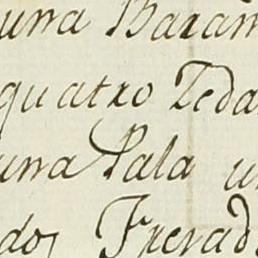 una Baran
quatro Ceda
una Sala u
dos Frerad